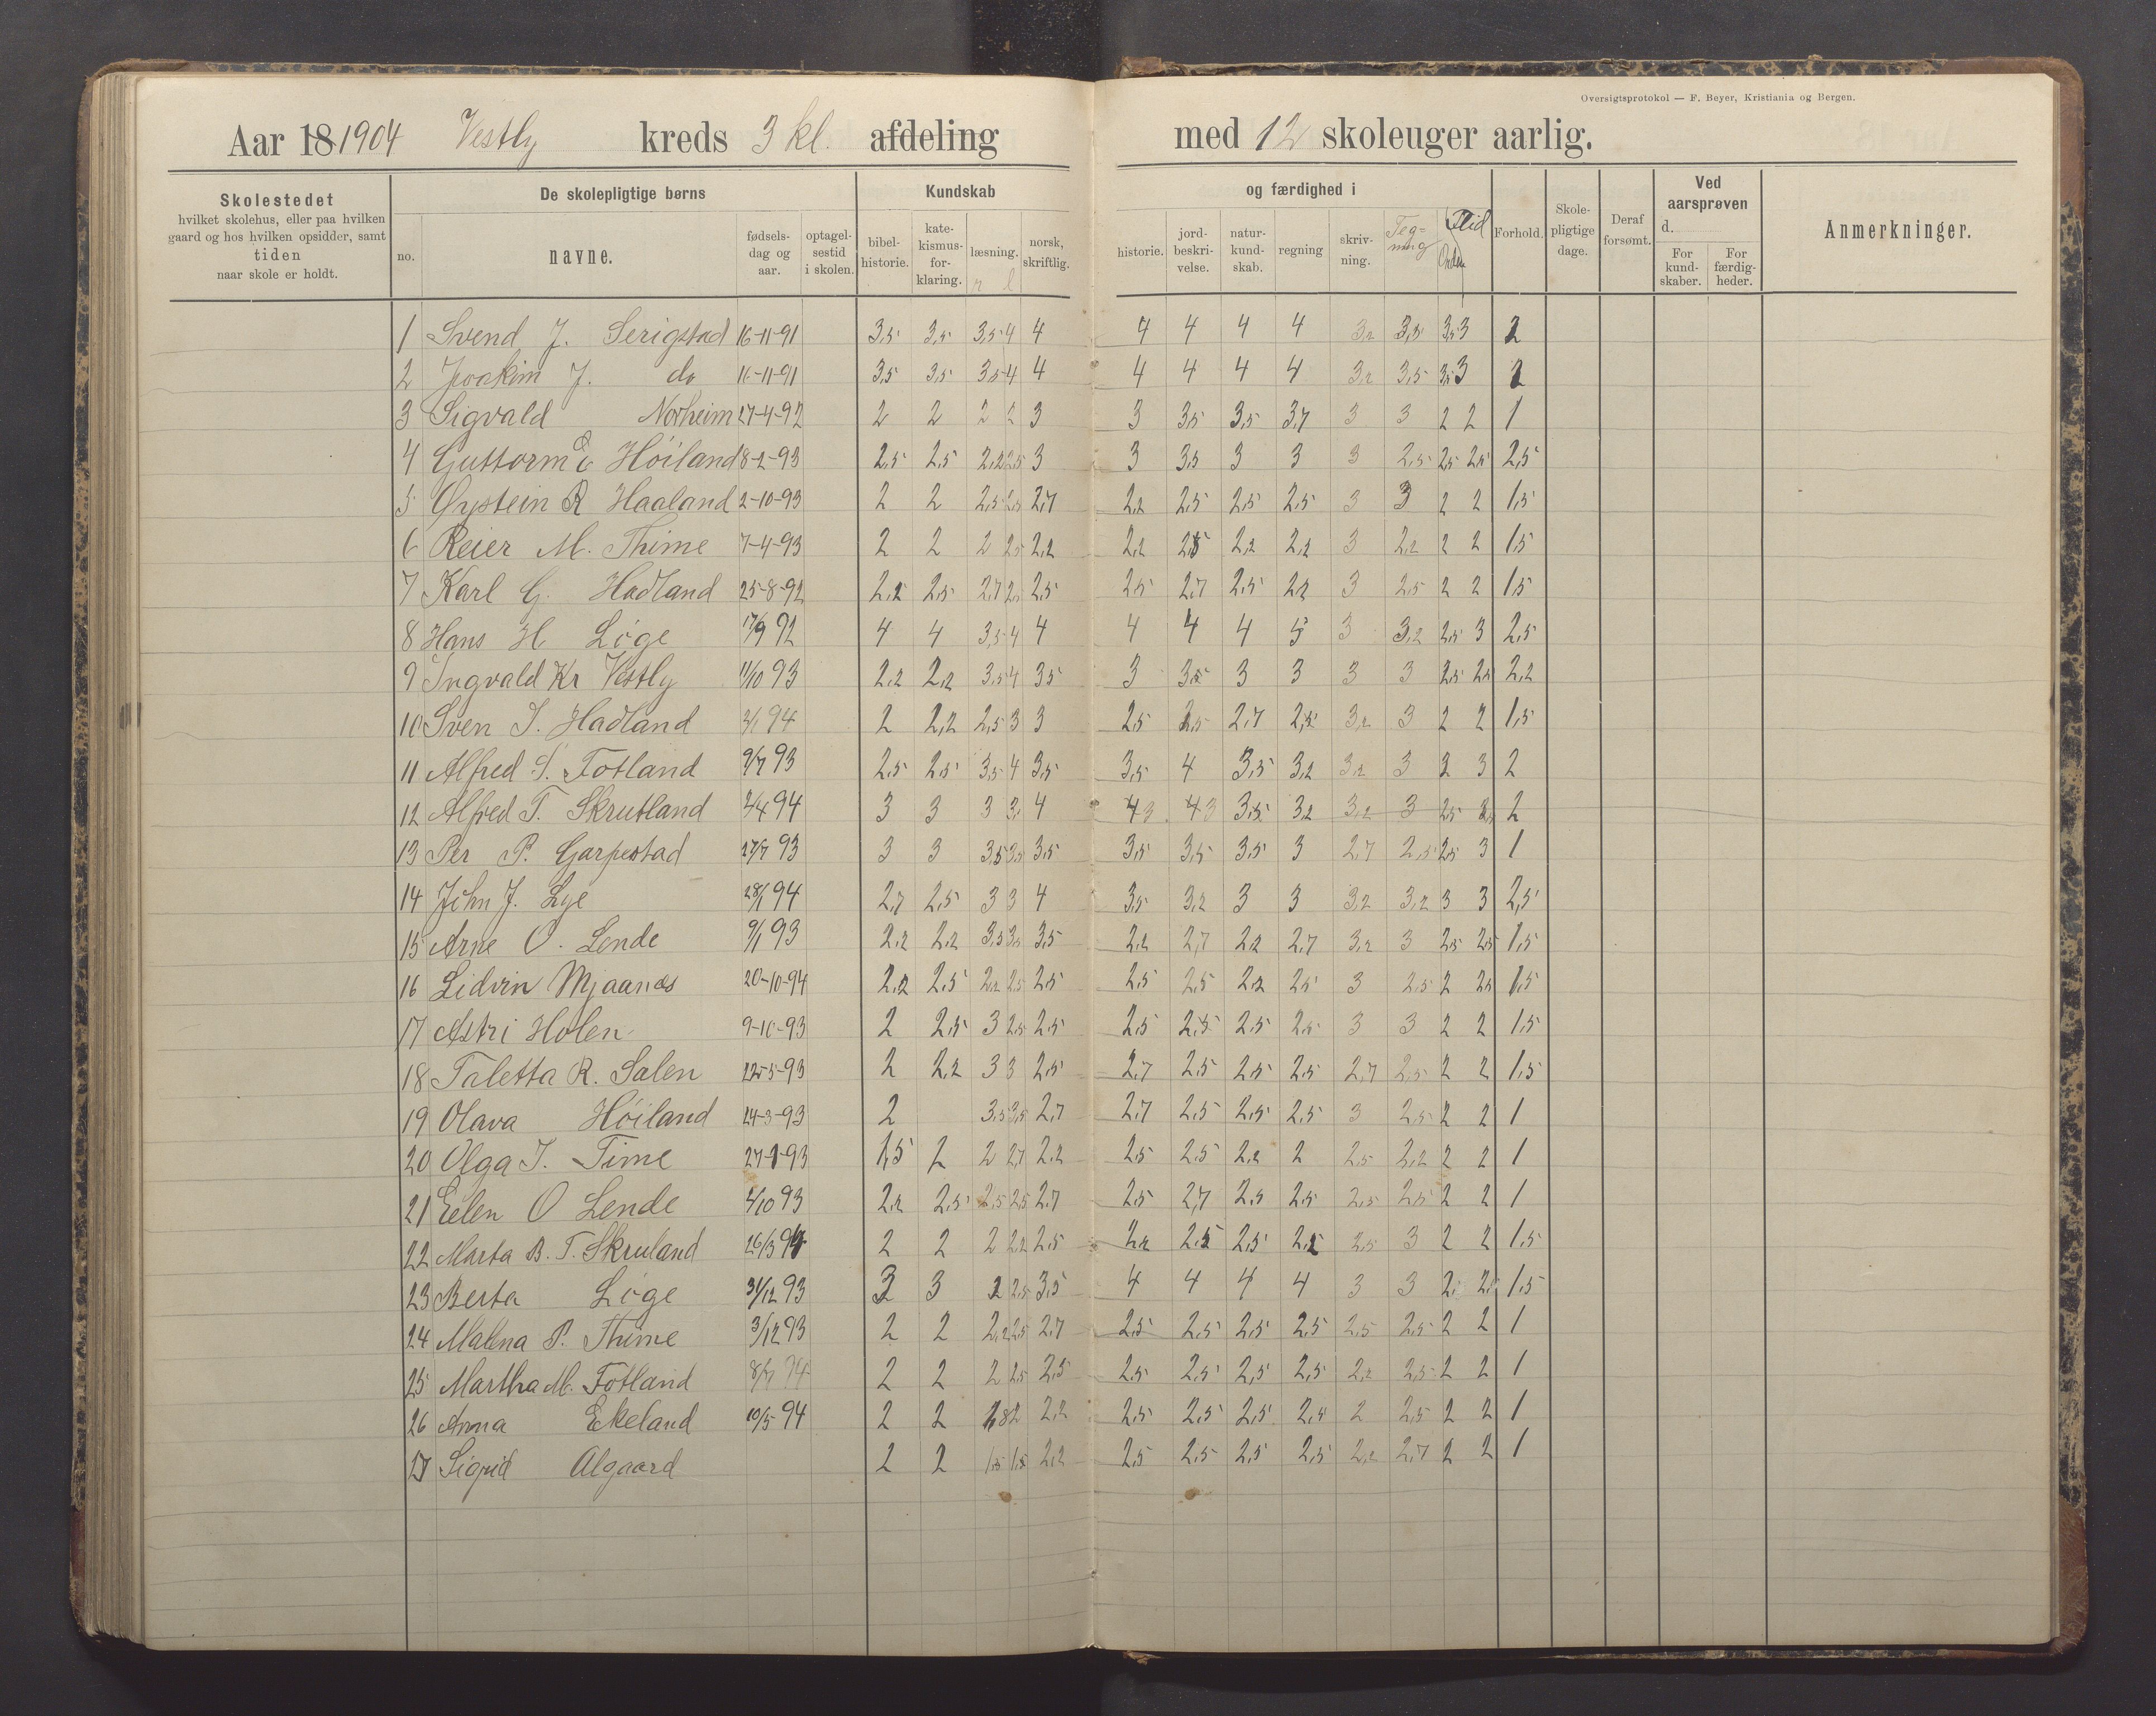 Oversigtsprotokol — F. Beyer, Kristiania og Bergen.
Aar 18 1904 Vestly kreds 3 kl. afdeling med 12 skoleuger aarlig.
Skolestedet hvilket skolehus, eller paa hvilken gaard og hos hvilken opsidder, samt tiden naar skole er holdt.
De skolepligtige børns
no. navne. fødselsdag og aar. optagelsestid i skolen.
Kundskab og færdighed i
bibelhistorie. katekismusforklaring. læsning. norsk, skriftlig. historie. jordbeskrivelse. naturkundskab. regning skrivning. Tegning Orden Flid Forhold. Skolepligtige dage. Deraf forsømt.
Ved aarsprøven d.
For kundskaber. For færdigheder.
Anmerkninger.
1 Svend J. Serigstad 16-11-91 3,5 3,5 3,5 4 4 4 4 4 4 3,2 3,5 3,5 3 2
2 Joakim J. do 16-11-91 3,5 3,5 3,5 4 4 4 4 4 4 3,2 3,5 3,5 3 2
3 Sigvald Norheim 27-4-92 2 2 2 2 3 3 3,5 3,5 3,7 3 3 2 2 1
4 Guttorm Höiland 8-2-93 2,5 2,5 2,2 2,5 3 3 3,5 3 3 3 2,5 2,5 2,5 2,5
5 Øystein R Haaland 2-10-93 2 2 2,5 2,5 2,7 2,2 2,5 2,5 2,5 3 3 2 2 1,5
6 Reier M. Thime 7-4-93 2 2 2 2,5 2,2 2,2 2,5 2,2 2,2 3 2,2 2 2 1,5
7 Karl G. Hadland 25-8-92 2,2 2,5 2,7 2,5 2,5 2,5 2,7 2,5 2,2 3 2,5 2 2 1,5
8 Hans H Löge 17/9 92 4 4 3,5 4 4 4 4 4 5 3 3,2 2,5 3 2,5
9 Ingvald Kr Vestly 11/10 93 2,2 2,2 3,5 4 3,5 3 3,5 3 3 3 3 2,5 2,5 2,2
10 Sven I. Hadland 2/1 94 2 2,2 2,5 3 3 2,5 2,5 2,7 2,5 3,2 3 2 2 1,5
11 Alfred S. Fotland 9/7 93 2,5 2,5 3,5 4 3,5 3,5 4 3,5 3,2 3,2 3 2 3 2
12 Alfred T. Skrutland 2/4 94 3 3 3 3, 4 4 3 4 3 3,5 3,2 3,2 3 2,5 2
13 Per P. Garpestad 27/7 93 3 3 3,5 3,5 3,5 3,5 3,5 3,5 3 2,7 2,5 2,5 3 1
14 John J. Lye 28/1 94 2,7 2,5 3 3 4 3,5 3,2 3 3 3,2 3,2 3 3 2,5
15 Arne O. Lende 9/1 93 2,2 2,2 3,5 3,5 3,5 2,2 2,7 2,2 2,7 3,2 3 2,5 2,5 1,5
16 Lidvin Mjaanes 20-10-94 2,2 2,5 2,2 2,5 2,5 2,5 2,5 2,2 2,5 3 2,5 2 2,5 1,5
17 Astri Holen 9-10-93 2 2,5 3 2,5 2,5 2,5 2,5 2,5 2,5 3 3 2 2 1,5
18 Taletta R. Salen 22-5-93 2 2,2 3 3 2,5 2,7 2,5 2,5 2,5 2,7 2,5 2 2 1,5
19 Olava Höiland 24-3-93 2 3,5 3,5 2,7 2,7 2,5 2,5 2,5 3 2,5 2 2 1
20 Olga J. Time 27-1-93 1,5 2 2 2,7 2,2 2,5 2,5 2,2 2 2,5 2,2 2 2 1
21 Elen O Lende 2/10 93 2,2 2,5 2,5 2,5 2,7 2,5 2,7 2,5 2,5 2,5 2,5 2 2 1
22 Marta B. T. Skruland 26/3 94 2 2 2 2,2 2,5 2,2 2,5 2,5 2,5 2,5 3 2 2 1,5
23 Berta Löge 31/12 93 3 3 2 2,5 3,5 4 4 4 4 3 3 2,5 2,5 1,5
24 Malena P. Thime 3/12 93 2 2 2,2 2,5 2,7 2,5 2,5 2,5 2,5 2,5 2,5 2 2 1
25 Martha M. Fotland 8/7 94 2 2 2 2,5 2,5 2,5 2,5 2,5 2,5 2,2 2,5 2 2 1
26 Anna Ekeland 10/5 94 2 2 1,8 2 2,2 2,5 2,5 2,5 2,5 2 2,5 2 2 1
27 Sigrid Algaard 2 2 1,5 1,8 2,2 2,5 2,5 2,5 2,5 2,2 2,7 2 2 1